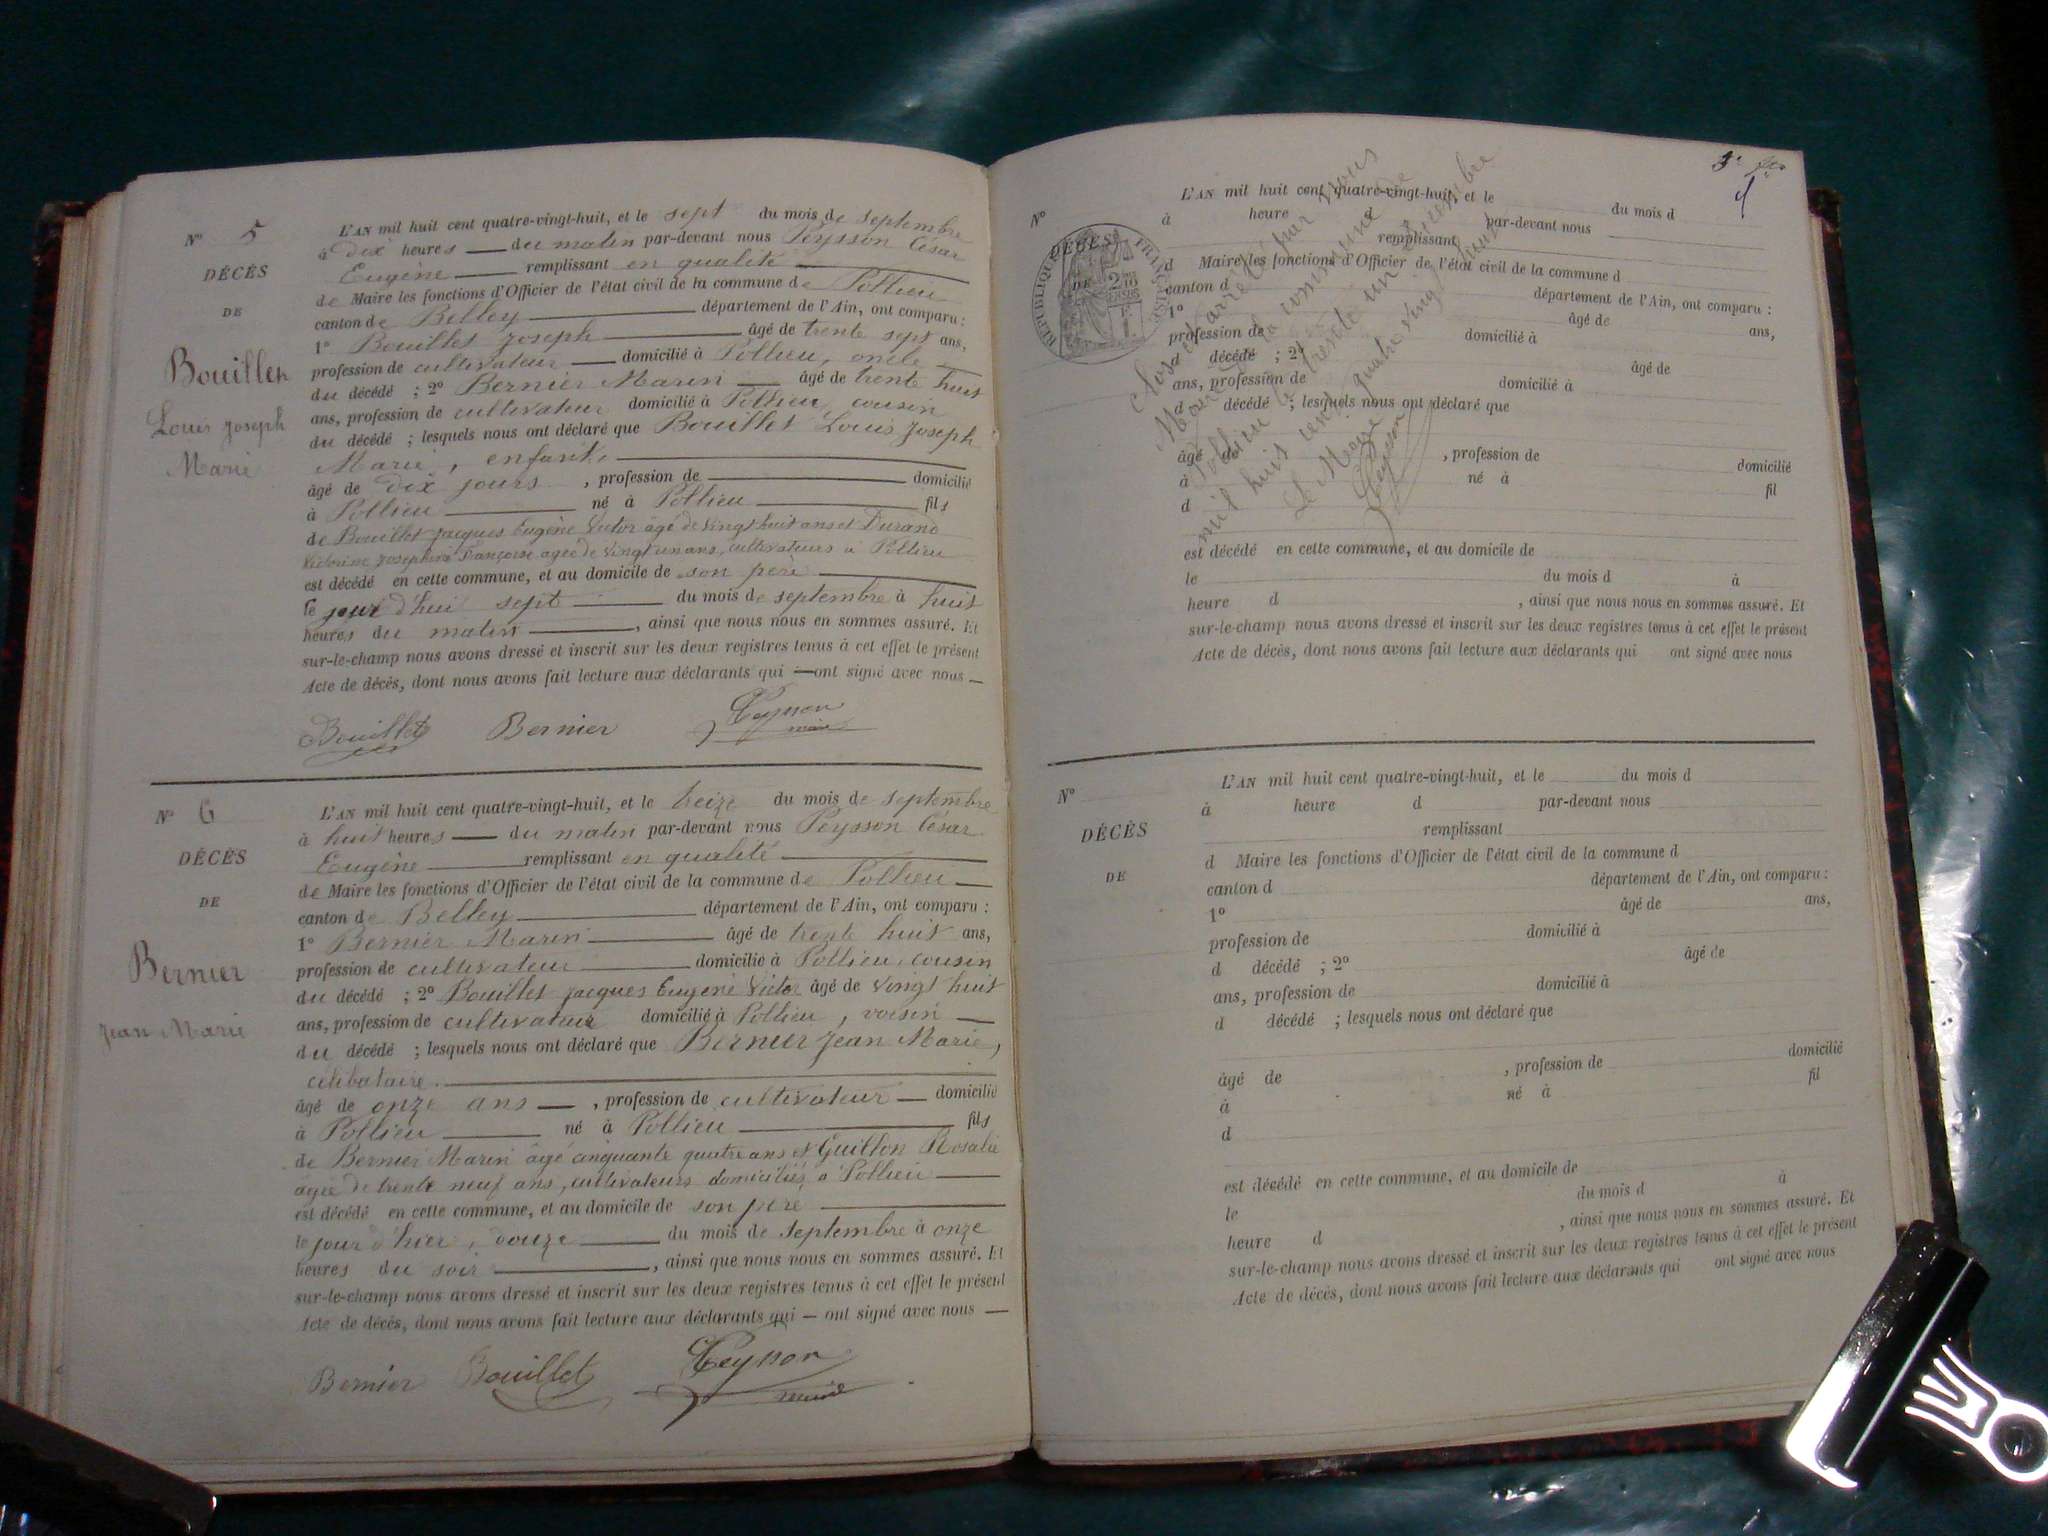 N° 5
DÉCÈS
DE
Bouillet
Louis Joseph
Marie
L'AN mil huit cent quatre-vingt-huit, et le sept du mois de septembre
à dix heures du matin par-devant nous Peysson César
Eugène remplissant en qualité
de Maire les fonctions d'Officier de l'état civil de la commune de Pollieu
canton de Belley département de l'Ain, ont comparu :
1° Bouillet Joseph âgé de trente sept ans,
profession de cultivateur domicilié à Pollieu, oncle
du décédé ; 2° Bernier Marin âgé de trente huit
ans, profession de cultivateur domicilié à Pollieu, cousin
du décédé ; lesquels nous ont déclaré que Bouillet Louis Joseph
Marie, enfant,
âgé de dix jours , profession de domicilié
à Pollieu né à Pollieu fils
de Bouillet Jacques Eugène Victor âgé de vingt huit ans et Durand
Victorine Joséphine Françoise agée de vingt un ans, cultivateurs à Pollieu
est décédé en cette commune, et au domicile de son père
le jour d'hui sept du mois de septembre à huit
heures du matin , ainsi que nous nous en sommes assuré. Et
sur-le-champ nous avons dressé et inscrit sur les deux registres tenus à cet effet le présent
Acte de décès, dont nous avons fait lecture aux déclarants qui ont signé avec nous
Bouillet Bernier Peysson
maire
N° 6
DÉCÈS
DE
Bernier
Jean Marie
L'AN mil huit cent quatre-vingt-huit, et le treize du mois de septembre
à huit heures du matin par-devant nous Peysson César
Eugène remplissant en qualité
de Maire les fonctions d'Officier de l'état civil de la commune de Pollieu
canton de Belley département de l'Ain, ont comparu :
1° Bernier Marin âgé de trente huit ans,
profession de cultivateur domicilié à Pollieu, cousin
du décédé ; 2° Bouillet Jacques Eugène Victor âgé de vingt huit
ans, profession de cultivateur domicilié à Pollieu, voisin
du décédé ; lesquels nous ont déclaré que Bernier Jean Marie,
célibataire.
âgé de onze ans , profession de cultivateur domicilié
à Pollieu né à Pollieu fils
de Bernier Marin âgé cinquante quatre ans et Guillon Rosalie
agée de trente neuf ans, cultivateurs domiciliés à Pollieu
est décédé en cette commune, et au domicile de son père
le jour d'hier, douze du mois de septembre à onze
heures du soir , ainsi que nous nous en sommes assuré. Et
sur-le-champ nous avons dressé et inscrit sur les deux registres tenus à cet effet le présent
Acte de décès, dont nous avons fait lecture aux déclarants qui ont signé avec nous
Bernier Bouillet Peysson
maire
N°
DÉCÈS
DE
RÉPUBLIQUE FRANÇAISE
L'AN mil huit cent quatre-vingt-huit, et le du mois d
à heure par-devant nous
remplissant
d Maire les fonctions d'Officier de l'état civil de la commune d
canton d département de l'Ain, ont comparu :
1° âgé de ans,
profession de domicilié à
d décédé ; 2° âgé de
ans, profession de domicilié à
d décédé ; lesquels nous ont déclaré que
âgé de , profession de domicilié
à né à fil
d
est décédé en cette commune, et au domicile de
le du mois d à
heure d , ainsi que nous nous en sommes assuré. Et
sur-le-champ nous avons dressé et inscrit sur les deux registres tenus à cet effet le présent
Acte de décès, dont nous avons fait lecture aux déclarants qui ont signé avec nous
Clos et arrêté par nous
Maire de la commune de
Pollieu le trente un décembre
mil huit cent quatre vingt huit
Le Maire
Peysson
N°
DÉCÈS
DE
L'AN mil huit cent quatre-vingt-huit, et le du mois d
à heure d par-devant nous
remplissant
d Maire les fonctions d'Officier de l'état civil de la commune d
canton d département de l'Ain, ont comparu :
1° âgé de ans,
profession de domicilié à
d décédé ; 2° âgé de
ans, profession de domicilié à
d décédé ; lesquels nous ont déclaré que
âgé de , profession de domicilié
à né à fil
d
est décédé en cette commune, et au domicile de
le du mois d à
heure d , ainsi que nous nous en sommes assuré. Et
sur-le-champ nous avons dressé et inscrit sur les deux registres tenus à cet effet le présent
Acte de décès, dont nous avons fait lecture aux déclarants qui ont signé avec nous